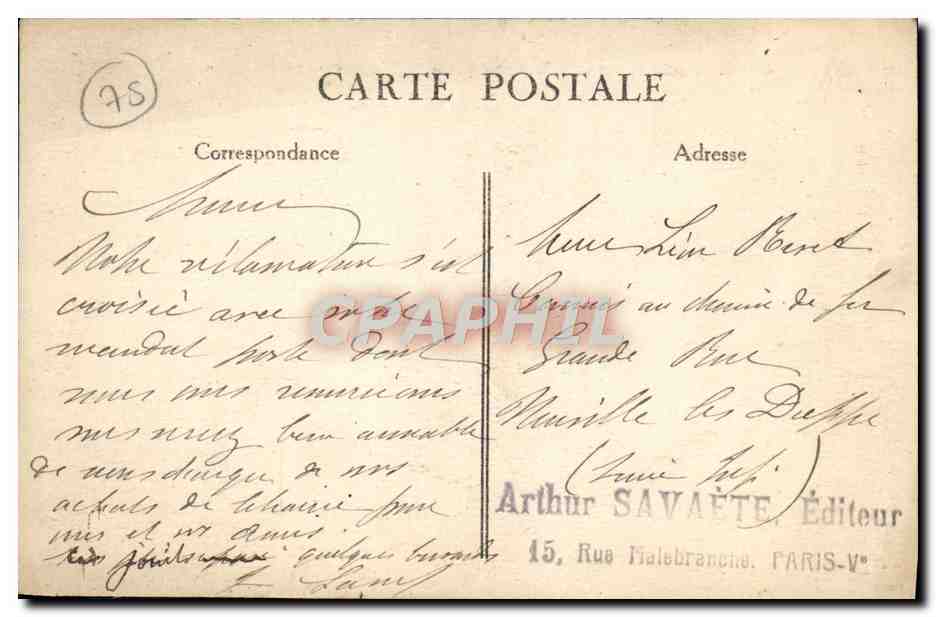 75
CARTE POSTALE
Correspondance
Notre réclamation s'est
croisée avec votre
mandat poste dont
nous vous remercions
vous serez bien aimable
de nous charger de vos
achats de librairie pour
vous et vos amis.
ci joint quelques
Adresse
Mme Léon
Commis au chemin de fer
Grande Rue
Neuville les Dieppe
(Seine Infj)
Arthur SAVAÈTE, Éditeur
15, Rue Malebranche, PARIS-Ve
CPAPHIL